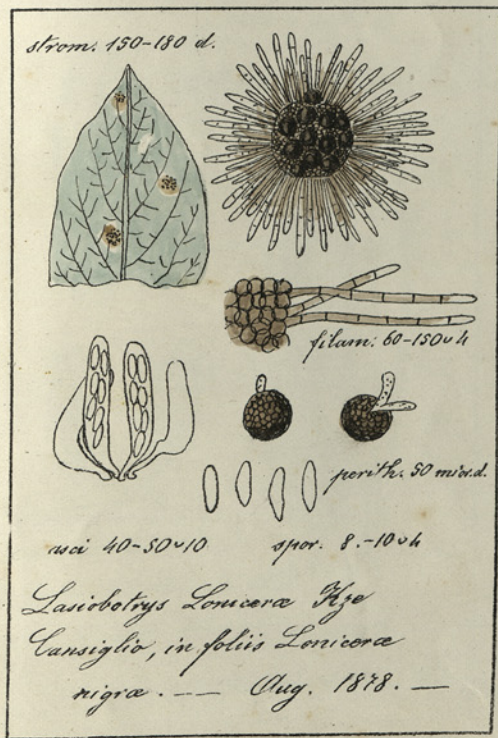 strom. 150-180 d.
filam: 60-150 v 4
perith. 50 micr. d.
asci 40-50 v 10
spor. 8.-10 v 4
Lasiobotrys Loniceræ Kze
Cansiglio, in foliis Loniceræ
nigræ. — — Aug. 1878. —